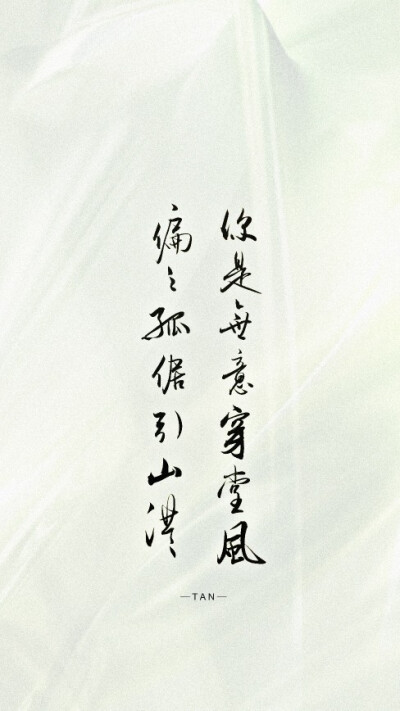 你是無意穿堂風
偏〻孤倨引山洪
—TAN—